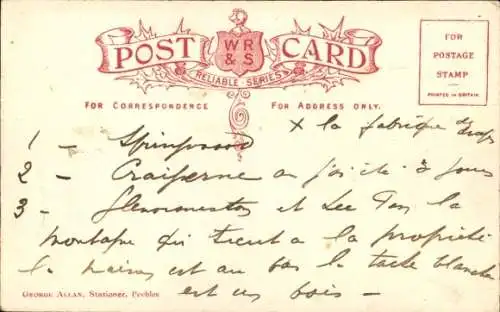 POST CARD
W R & S
RELIABLE SERIES
FOR CORRESPONDENCE
FOR ADDRESS ONLY.
FOR
POSTAGE
STAMP
PRINTED IN BRITAIN
x la fabrique de
1 - Springwood
2 - ai été 3 jours
3 - et Lee Pen la
montagne qui tient a la propriété
la maison est au bas la tache blanche
est un bois -
GEORGE ALLAN, Stationer, Peebles